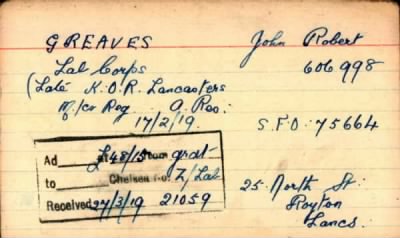 GREAVES John Robert
Lab Corps 606998
(Late K.O.R. Lancasters
M/cr Reg A. Res:
17/2/19. S.F.O. 75664
Ad £48/15 grat-
to Chelsea No. Z/Lab
Received 27/3/19 21059
25. North St.
Royton
Lancs.